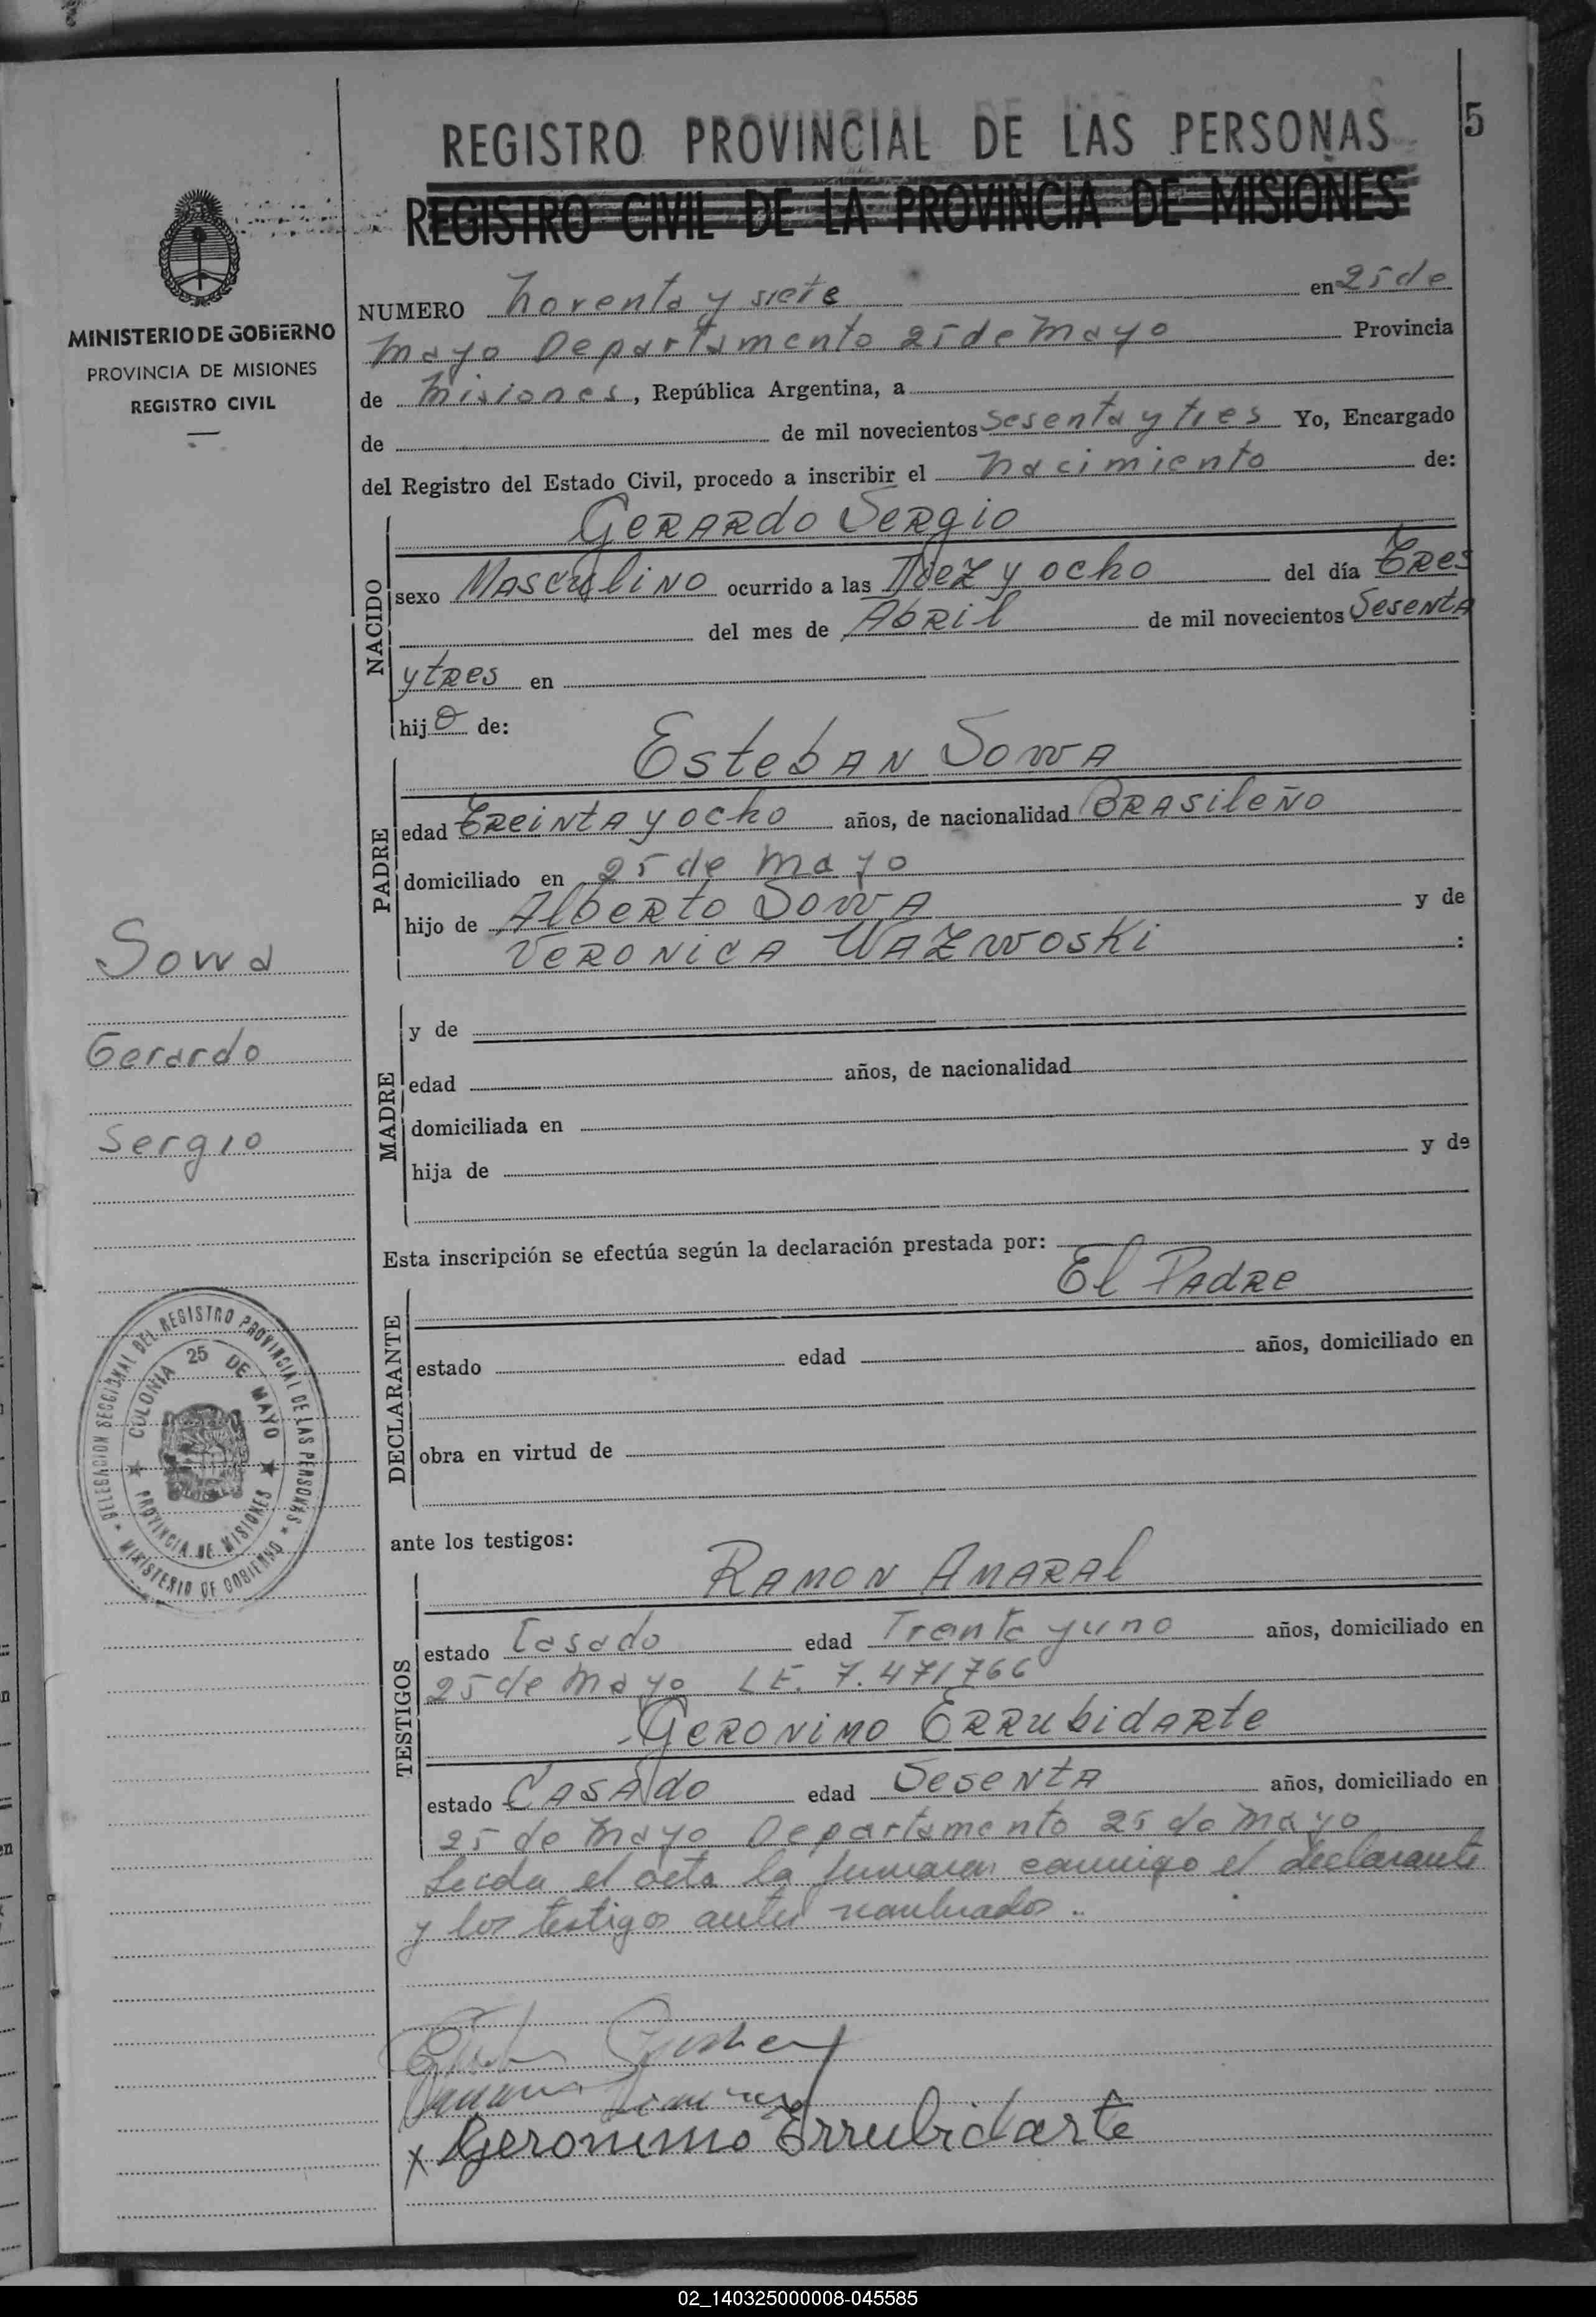 5
REGISTRO PROVINCIAL DE LAS PERSONAS
REGISTRO CIVIL DE LA PROVINCIA DE MISIONES
MINISTERIO DE GOBIERNO
PROVINCIA DE MISIONES
REGISTRO CIVIL
NUMERO noventa y siete en 25 de
Mayo Departamento 25 de Mayo Provincia
de Misiones, República Argentina, a
de de mil novecientos sesenta y tres Yo, Encargado
del Registro del Estado Civil, procedo a inscribir el nacimiento de:
NACIDO
Gerardo Sergio
sexo Masculino ocurrido a las Diez y ocho del día Tres
del mes de Abril de mil novecientos Sesenta
y tres en
hijo de:
PADRE
Esteban Sowa
edad Treinta y ocho años, de nacionalidad Brasileño
domiciliado en 25 de Mayo
hijo de Alberto Sowa y de
Veronica Wazwoski :
MADRE
y de
edad años, de nacionalidad
domiciliada en
hija de y de
Sowa
Gerardo
Sergio
Esta inscripción se efectúa según la declaración prestada por:
DECLARANTE
El Padre
estado edad años, domiciliado en
obra en virtud de
DELEGACION SECCIONAL DEL REGISTRO PROVINCIAL DE LAS PERSONAS
MINISTERIO DE GOBIERNO
COLONIA 25 DE MAYO
PROVINCIA DE MISIONES
ante los testigos:
TESTIGOS
Ramon Amaral
estado Casado edad Treinta y uno años, domiciliado en
25 de Mayo LE. 7.471766
Geronimo Errubidarte
estado Casado edad Sesenta años, domiciliado en
25 de Mayo Departamento 25 de Mayo
Leida el acta la firmaron conmigo el declarante
y los testigos antes nombrados.
x Geronimo Errubidarte
02_140325000008-045585